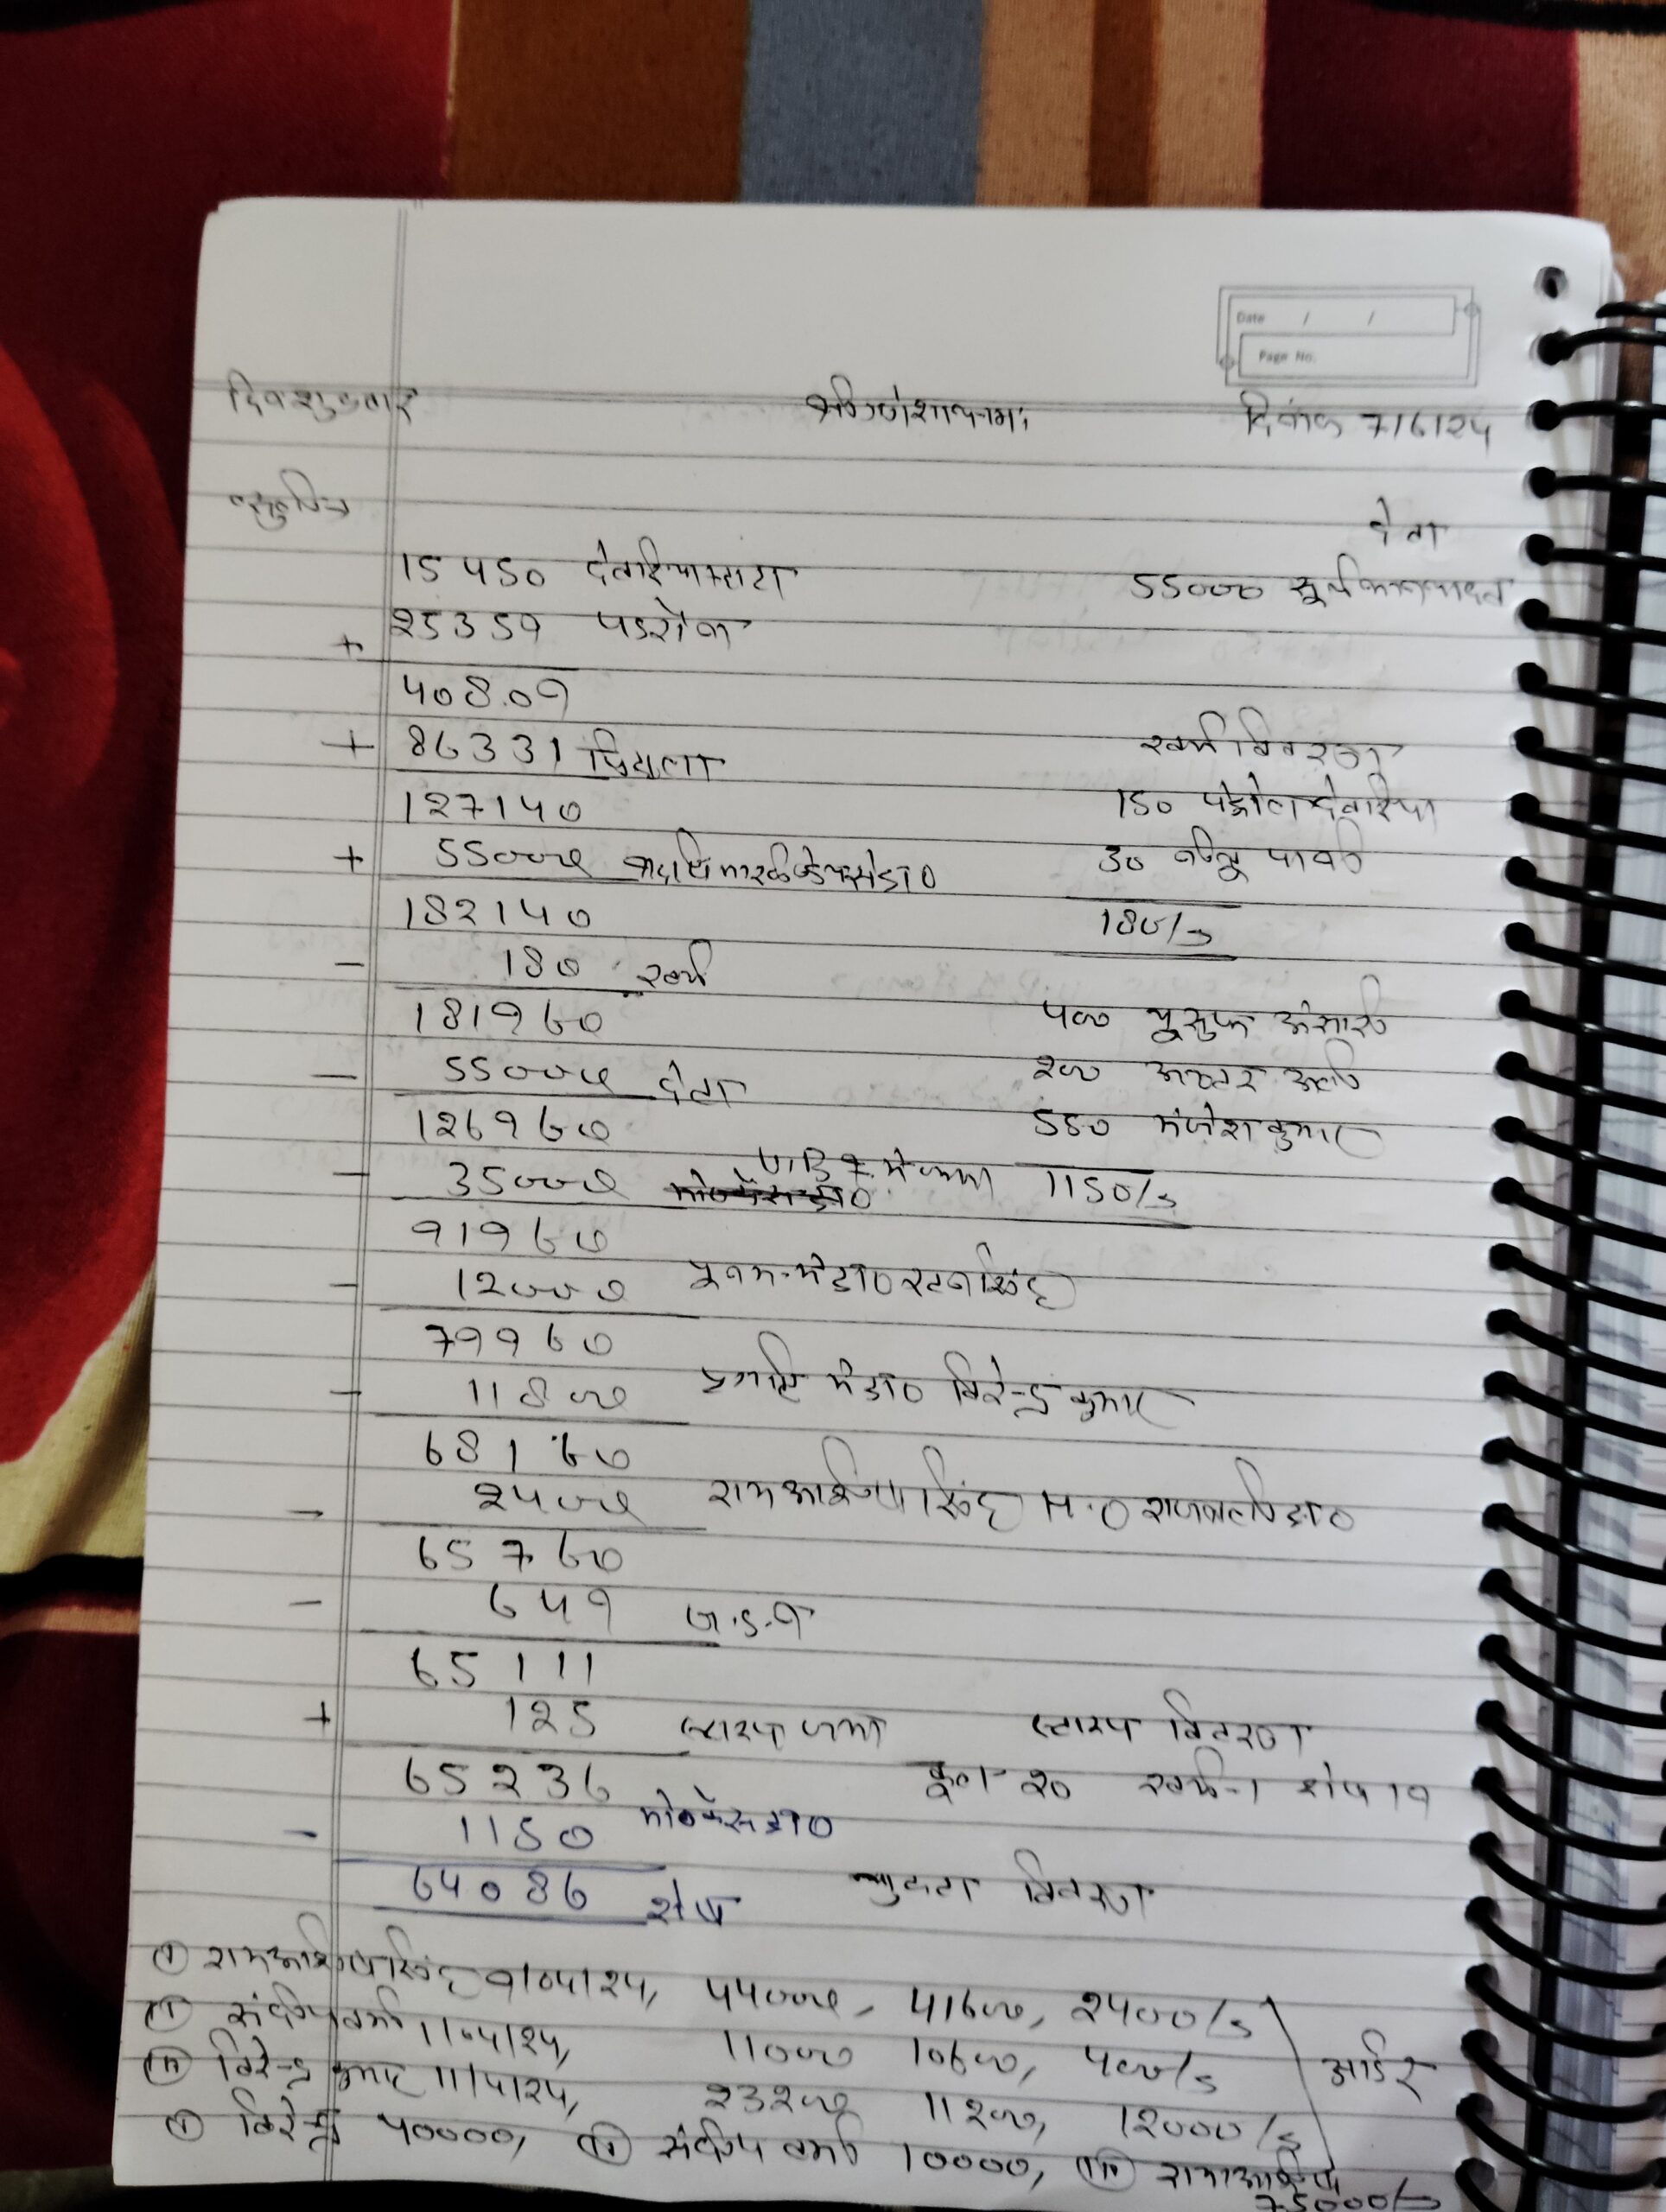 Date / /
Page No.
दिन शुक्रवार श्री गणेशाय नमः दिनांक 7/6/24
वसुलिन
देना
15450 देवरिया 55000
+ 25359 पडरौना
40809
+ 86331 खर्च विवरण
127140 150 पेट्रोल देवरिया
+ 55000 30 पानी
182140 180/-
- 180 खर्च
181960 400 यूसुफ अंसारी
- 55000 देना 200 अख्तर अली
126960 550 मंजेश कुमार
- 35000 में जमा 1150/-
91960
- 12000 पूनम
79960
- 11800 प्रगति मे डा० विरेन्द्र कुमार
68160
- 2400 राम आशिष सिंह
65760
- 649
65111
+ 125 स्टाम्प जमा स्टाम्प विवरण
65236 कुल 20 खर्च-1 शेष 19
- 1150
64086 शेष विवरण
(i) राम आशिष सिंह 9/04/24, 44000, 41600, 2400/-
(ii) संदीप वर्मा 11/4/24, 11000 10600, 400/- आर्डर
(iii) विरेन्द्र कुमार 11/4/24, 23200 11200, 12000/-
(i) विरेन्द्र 40000, (ii) संदीप वर्मा 10000, (iii) राम आशिष
75000/-